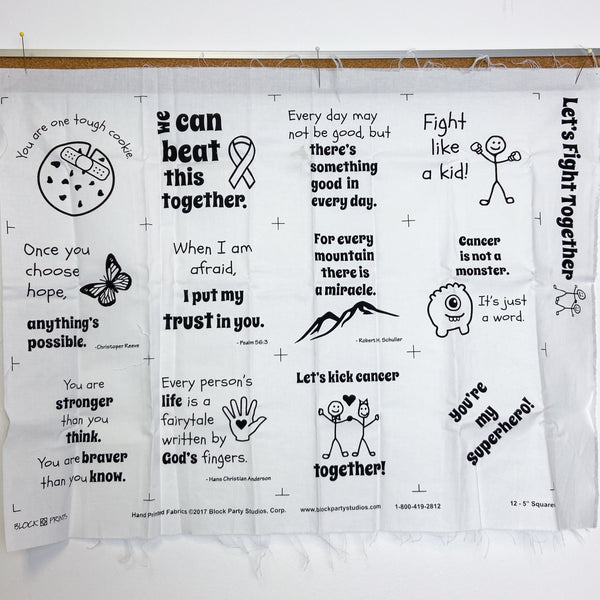 You are one tough cookie.
we can
beat
this
together.
Every day may
not be good, but
there's
something
good in
every day.
Fight
like
a kid!
Let's Fight Together
Once you
choose
hope,
anything's
possible.
-Christoper Reeve
When I am
afraid,
I put my
trust in you.
- Psalm 56:3
For every
mountain
there is
a miracle.
- Robert H. Schuller
Cancer
is not a
monster.
It's just
a word.
You are
stronger
than you
think.
You are braver
than you know.
Every person's
life is a
fairytale
written by
God's fingers.
- Hans Christian Anderson
Let's kick cancer
together!
you're
my
superhero!
BLOCK PRINTS
Hand Printed Fabrics ©2017 Block Party Studios, Corp. www.blockpartystudios.com 1-800-419-2812 12 - 5" Squares